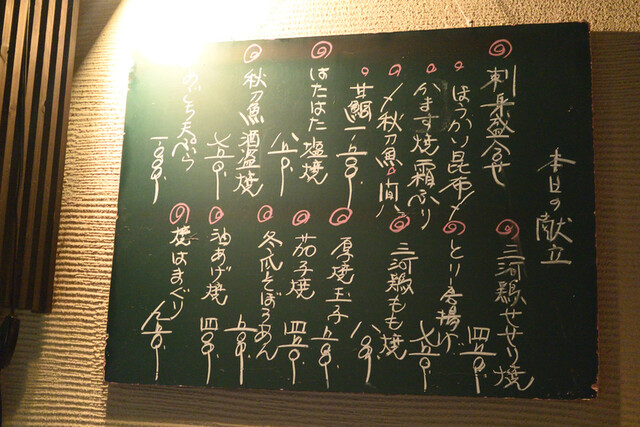 本日の献立
刺身盛合せ
昆布〆
かます焼霜
〆秋刀魚 間八
甘鯛
はたはた塩焼 八五〇
秋刀魚酒盗焼 七五〇
天ぷら
三河鶏せせり焼 四五〇
とり唐揚げ 七五〇
三河鶏もも焼 八〇〇
厚焼玉子 五五〇
茄子焼 四五〇
冬瓜そぼろあん 五五〇
油あげ焼 四〇〇
焼はまぐり 八五〇